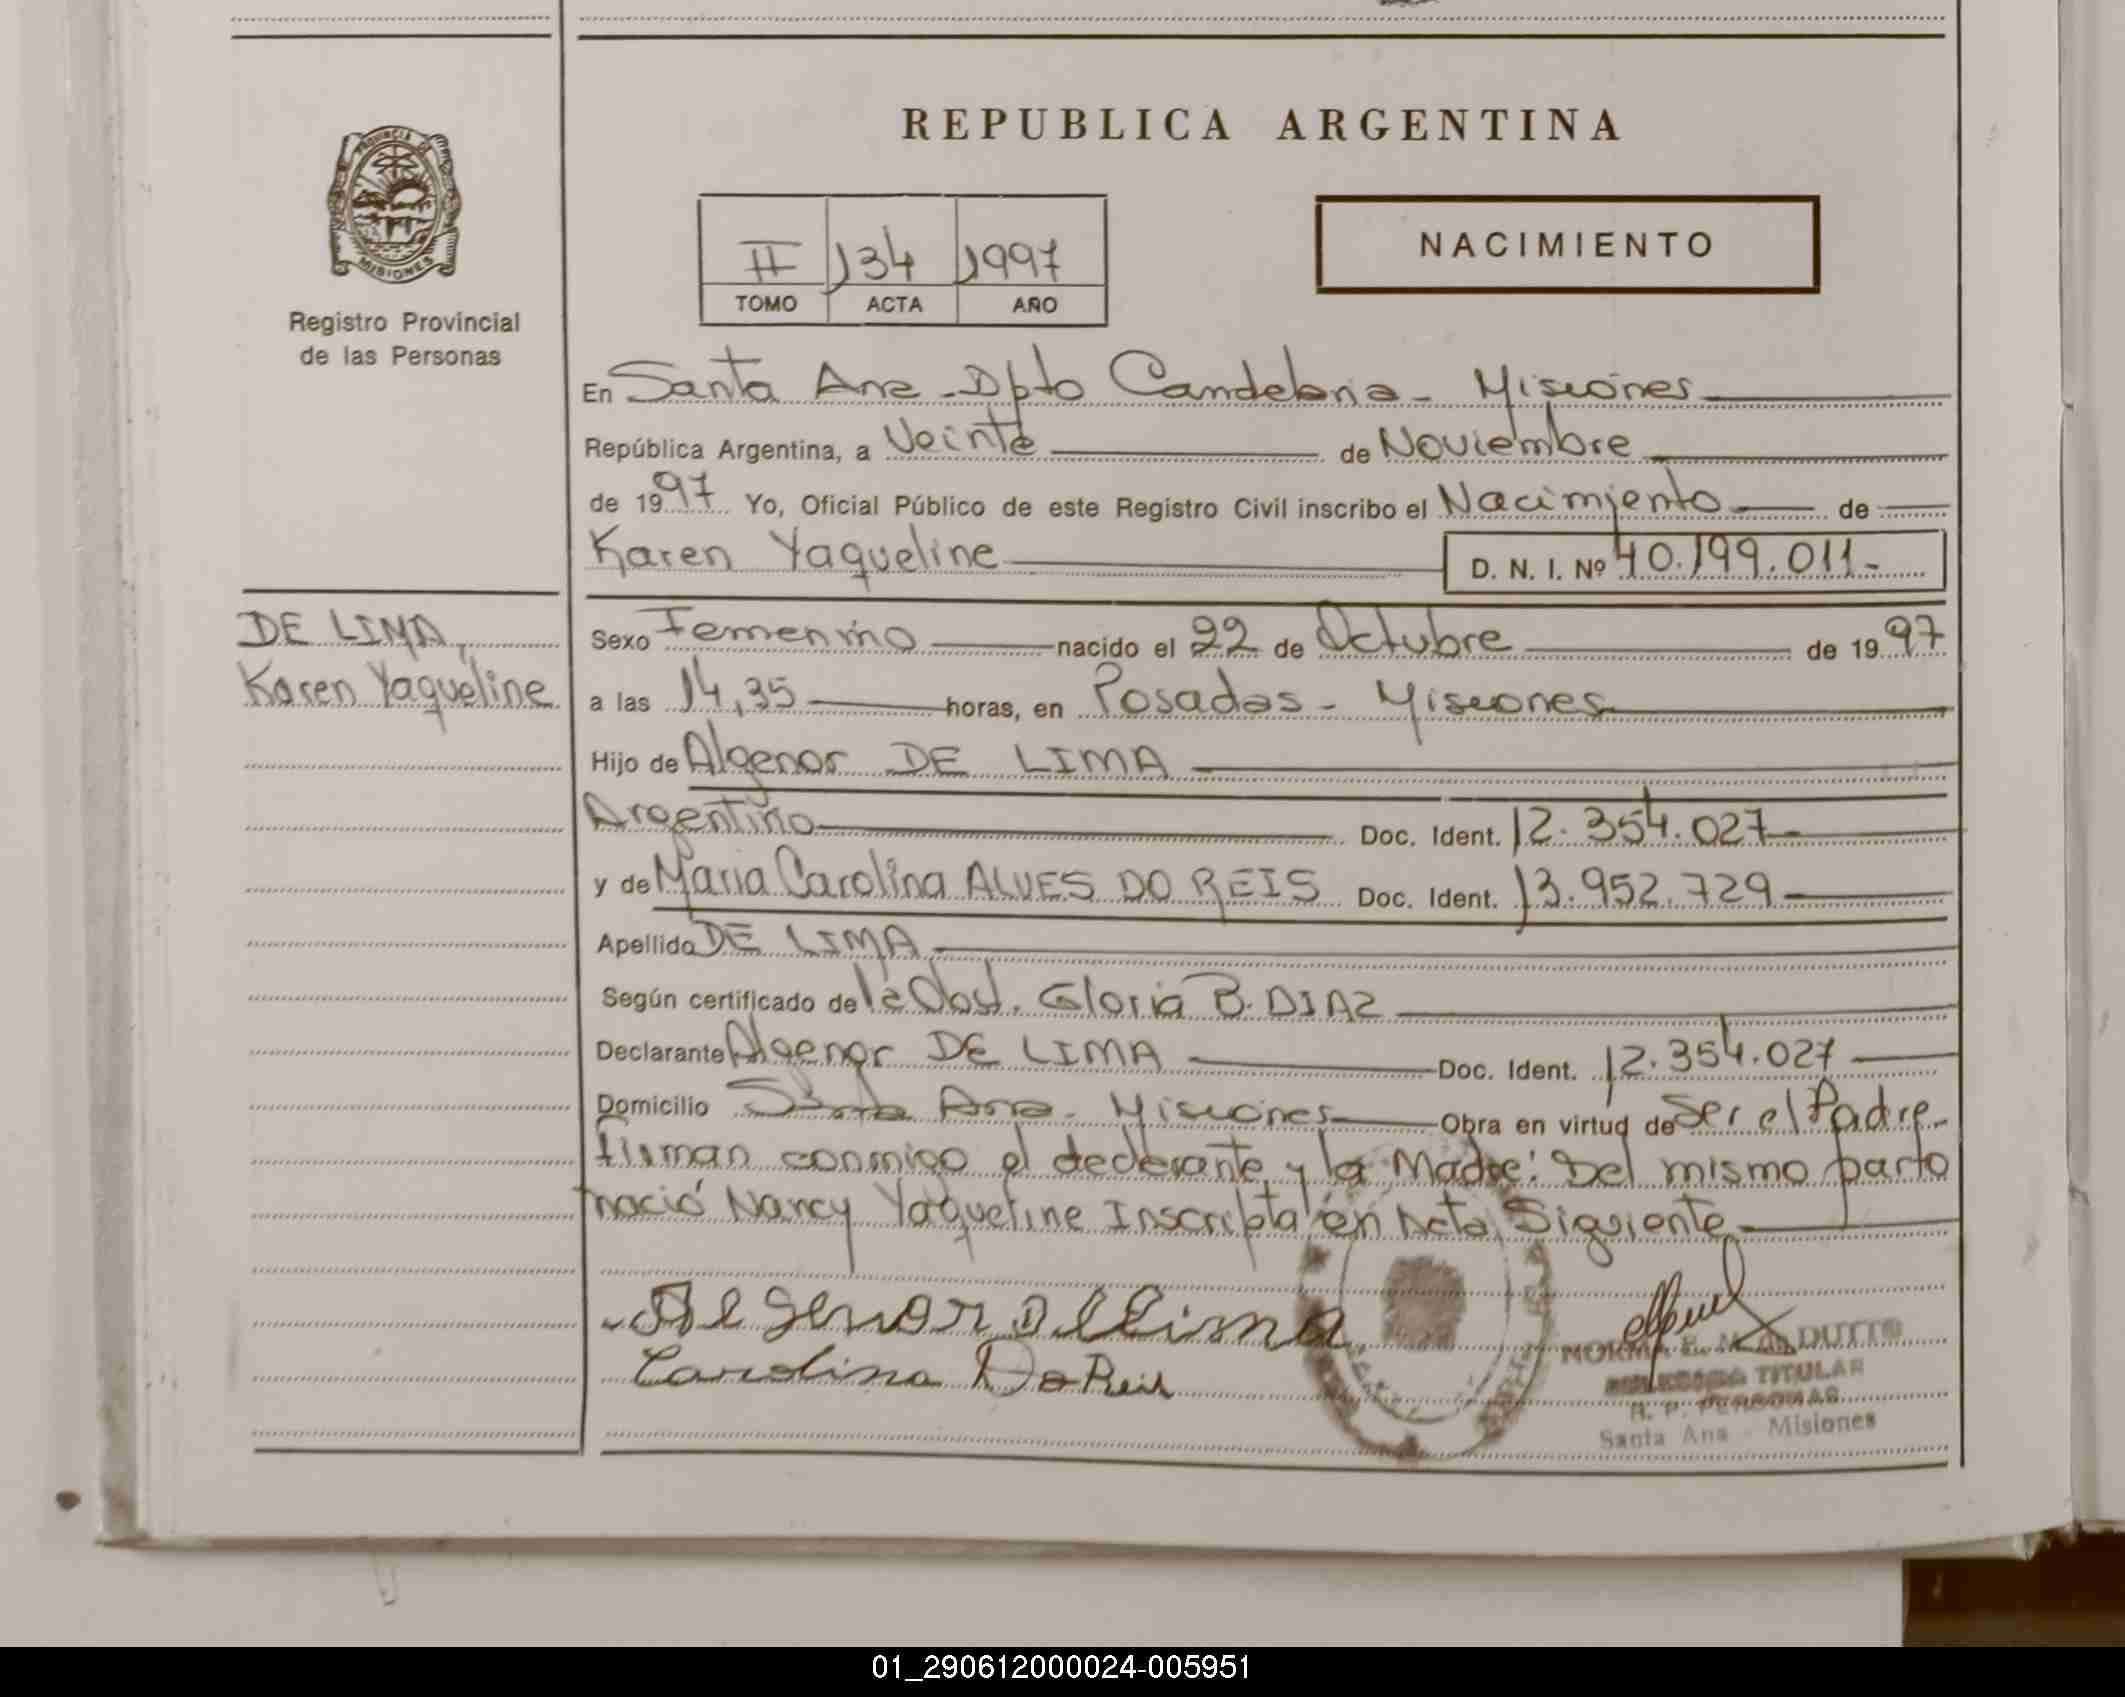 REPUBLICA ARGENTINA
PROVINCIA DE
MISIONES
Registro Provincial
de las Personas
II 134 1997
TOMO ACTA AÑO
NACIMIENTO
En Santa Ana - Dpto Candelaria - Misiones
República Argentina, a Veinte de Noviembre
de 1997 Yo, Oficial Público de este Registro Civil inscribo el Nacimiento de
Karen Yaqueline D. N. I. Nº 40.199.011-
DE LIMA,
Karen Yaqueline
Sexo Femenino nacido el 22 de Octubre de 1997
a las 14,35 horas, en Posadas - Misiones
Hijo de Algenor DE LIMA
Argentino Doc. Ident. 12.354.027
y de Maria Carolina ALVES DO REIS Doc. Ident. 13.952.729
Apellido DE LIMA
Según certificado de la Obst. Gloria B. DIAZ
Declarante Algenor DE LIMA Doc. Ident. 12.354.027
Domicilio Santa Ana - Misiones Obra en virtud de Ser el Padre-
firman conmigo el declarante y la Madre: Del mismo parto
nació Nancy Yaqueline Inscripta en Acta Siguiente
Algenor De Lima
Carolina Do Reis
NORMA DUTTO
TITULAR
R. P. PERSONAS
Santa Ana - Misiones
01_290612000024-005951